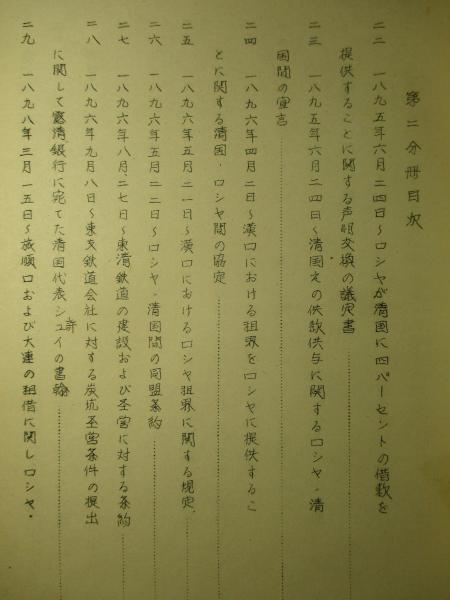 第二分冊目次
二二 一八九五年六月二四日〜ロシヤが清国に四パーセントの借款を
提供することに関する声明交換の議定書……
二三 一八九五年六月二四日〜清国之の供款供与に関するロシヤ・清
国間の宣言……
二四 一八九六年四月二日〜漢口における租界をロシヤに提供するこ
とに関する清国・ロシヤ間の協定……
二五 一八九六年五月二一日〜漢口におけるロシヤ租界に関する規定……
二六 一八九六年五月二二日〜ロシヤ・清国間の同盟条約……
二七 一八九六年八月二七日〜東清鉄道の建設および経営に対する条約……
二八 一八九六年九月八日〜東支鉄道会社に対する炭坑経営条件の提出
に関して露清銀行に宛てた清国代表シュイの書翰……
二九 一八九八年三月一五日〜旅順口および大連の租借に関しロシヤ・